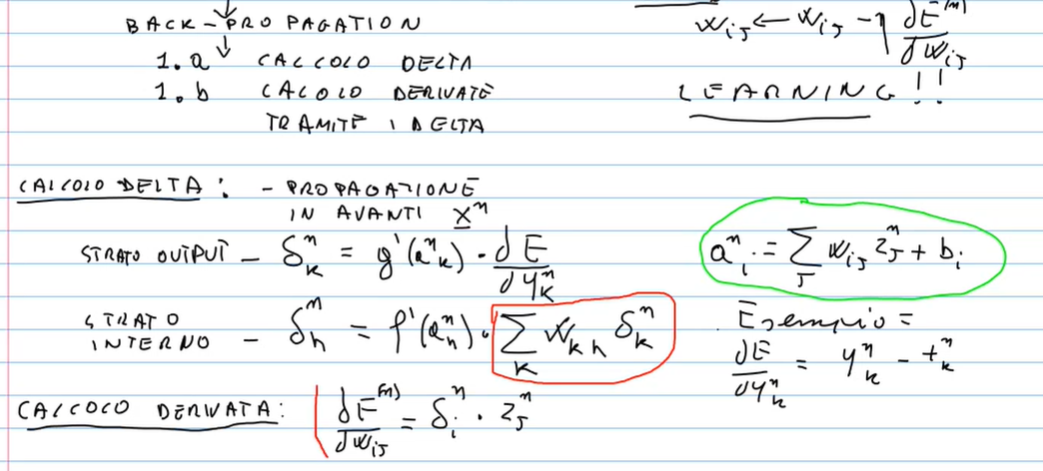 BACK-PROPAGATION
w_ij ← w_ij - η ∂E^(n)/∂w_ij
1.a CALCOLO DELTA
1.b CALOLO DERIVATE
LEARNING!!
TRAMITE I DELTA
CALCOLO DELTA: - PROPAGATIONE
IN AVANTI x^n
STRATO OUTPUT - δ_k^n = g'(a_k^n) · ∂E/∂y_k^n
a_i^n = ∑_j w_ij z_j^n + b_i
STRATO
INTERNO - δ_h^n = f'(a_h^n) · ∑_k w_kh δ_k^n
Esempio =
∂E/∂y_k^n = y_k^n - t_k^n
CALCOLO DERIVATA: ∂E^(n)/∂w_ij = δ_i^n · z_j^n